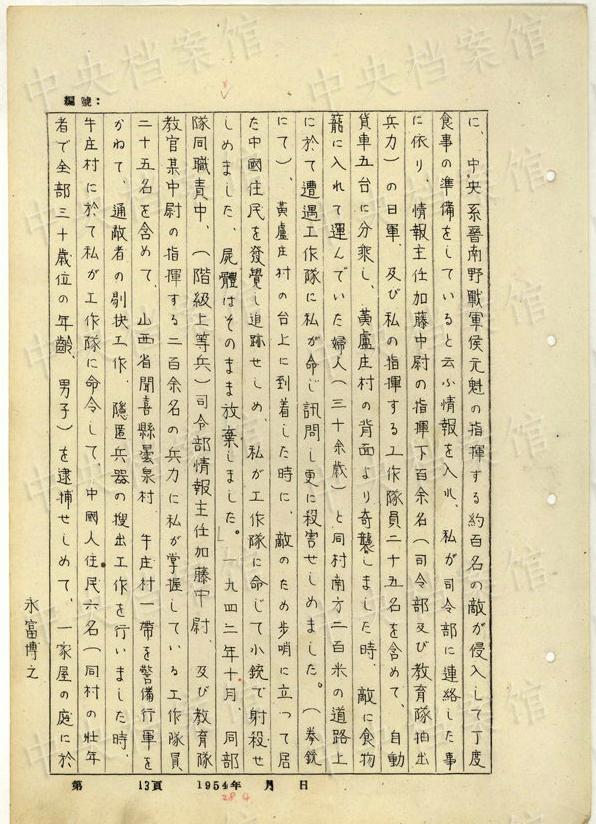 編號：
に、中央系晋南野戰軍侯元魁の指揮する約百名の敵が侵入して丁度
食事の準備をしていると云ふ情報を入れ、私が司令部に連絡した事
に依り、情報主任加藤中尉の指揮下百余名（司令部及び教育隊抽出
兵力）の日軍、及び私の指揮する工作隊員二十五名を含めて、自動
貨車五台に分乘し、黃盧庄村の背面より奇襲しました時、敵に食物
籠に入れて運んでいた婦人（三十余歳）と同村南方二百米の道路上
に於て遭遇工作隊に私が命じ訊問し更に殺害せしめました。（拳銃
にて）、黃盧庄村の台上に到着した時に、敵のため步哨に立つて居
た中國住民を發覺し追跡せしめ、私が工作隊に命じて小銃で射殺せ
しめました、屍體はそのまま放棄しました。」一九四二年十月、同部
隊同職責中、（階級上等兵）司令部情報主任加藤中尉、及び教育隊
教官某中尉の指揮する二百余名の兵力に私が掌握している工作隊員
二十五名を含めて、山西省聞喜縣曇泉村、牛庄村一帶を警備行軍を
かねて、通敵者の剔抉工作、隱匿兵器の搜出工作を行いました時、
牛庄村に於て私が工作隊に命令して、中國人住民六名（同村の壯年
者で全部三十歳位の年齡、男子）を逮捕せしめて、一家屋の庭に於
永富博之
第 13頁 1954年 月 日
28 4
中央档案馆